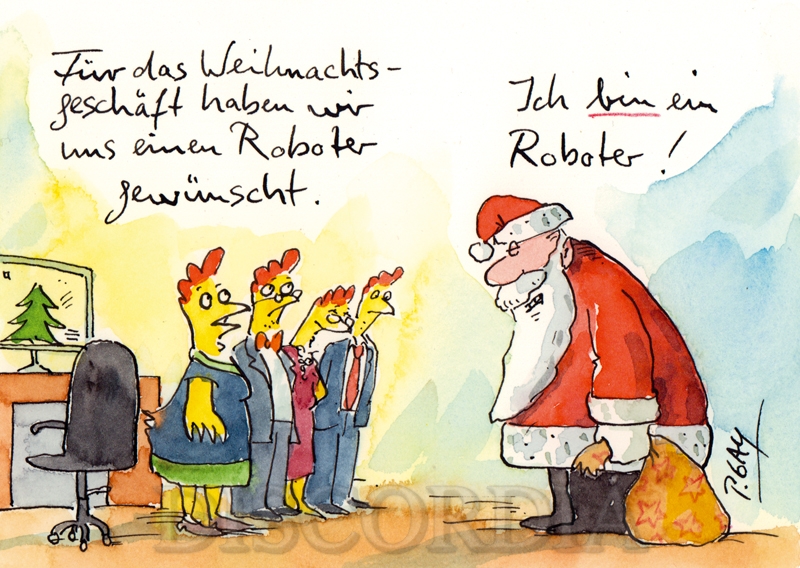 Für das Weihnachts-
geschäft haben wir
uns einen Roboter
gewünscht.
Ich bin ein
Roboter!
P. GAY
DISCORDIA